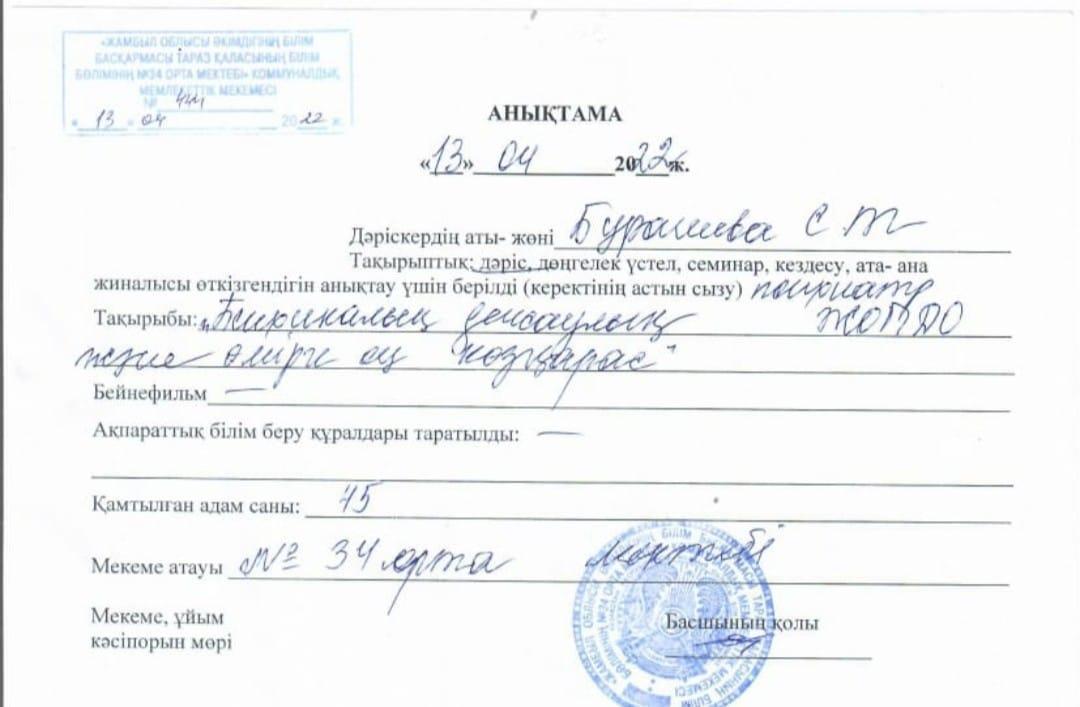 «ЖАМБЫЛ ОБЛЫСЫ ӘКІМДІГІНІҢ БІЛІМ
БАСҚАРМАСЫ ТАРАЗ ҚАЛАСЫНЫҢ БІЛІМ
БӨЛІМІНІҢ №34 ОРТА МЕКТЕБІ» КОММУНАЛДЫҚ
МЕМЛЕКЕТТІК МЕКЕМЕСІ
№ 444
«13» 04 2022 ж.
АНЫҚТАМА
«13» 04 2022 ж.
Дәріскердің аты- жөні Бурашева С
Тақырыптық: дәріс, дөңгелек үстел, семинар, кездесу, ата- ана
жиналысы өткізгендігін анықтау үшін берілді (керектінің астын сызу) психиатр
Тақырыбы: денсаулық
және өмірге оң көзқарас"
Бейнефильм —
Ақпараттық білім беру құралдары таратылды: —
Қамтылған адам саны: 45
Мекеме атауы № 34 орта мектебі
Мекеме, ұйым
кәсіпорын мөрі
Басшының қолы